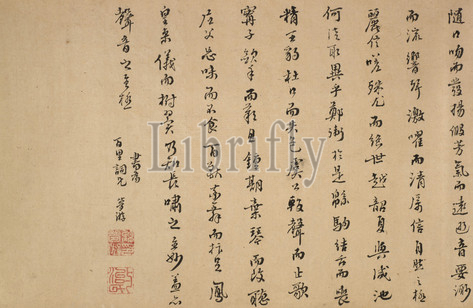 隨口吻而發揚假芳氣而遠逝音要渺
而流響聲激嚁而清厲信自然之極
麗信嗟殊尤而絕世越韶夏與咸池
何徒取異乎鄭衛於是綿駒結舌而喪
精王豹杜口而失色虞公輟聲而止歌
甯子斂手而歎息鍾期棄琴而改聽
尼父忘味而不食百獸率舞而抃足鳳
皇來儀而拊翼乃知長嘯之奇妙蓋亦
聲音之至極
書為
百里詞兄
Librifly